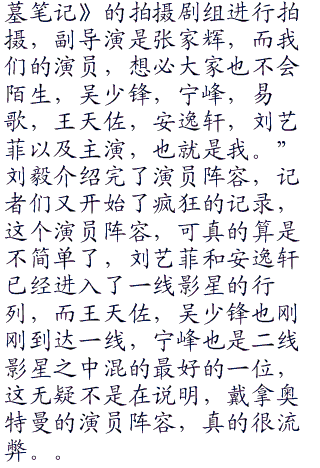 墓笔记》的拍摄剧组进行拍
摄，副导演是张家辉，而我
们的演员，想必大家也不会
陌生，吴少锋，宁峰，易
歌，王天佐，安逸轩，刘艺
菲以及主演，也就是我。”
刘毅介绍完了演员阵容，记
者们又开始了疯狂的记录，
这个演员阵容，可真的算是
不简单了，刘艺菲和安逸轩
已经进入了一线影星的行
列，而王天佐，吴少锋也刚
刚到达一线，宁峰也是二线
影星之中混的最好的一位，
这无疑不是在说明，戴拿奥
特曼的演员阵容，真的很流
弊。。